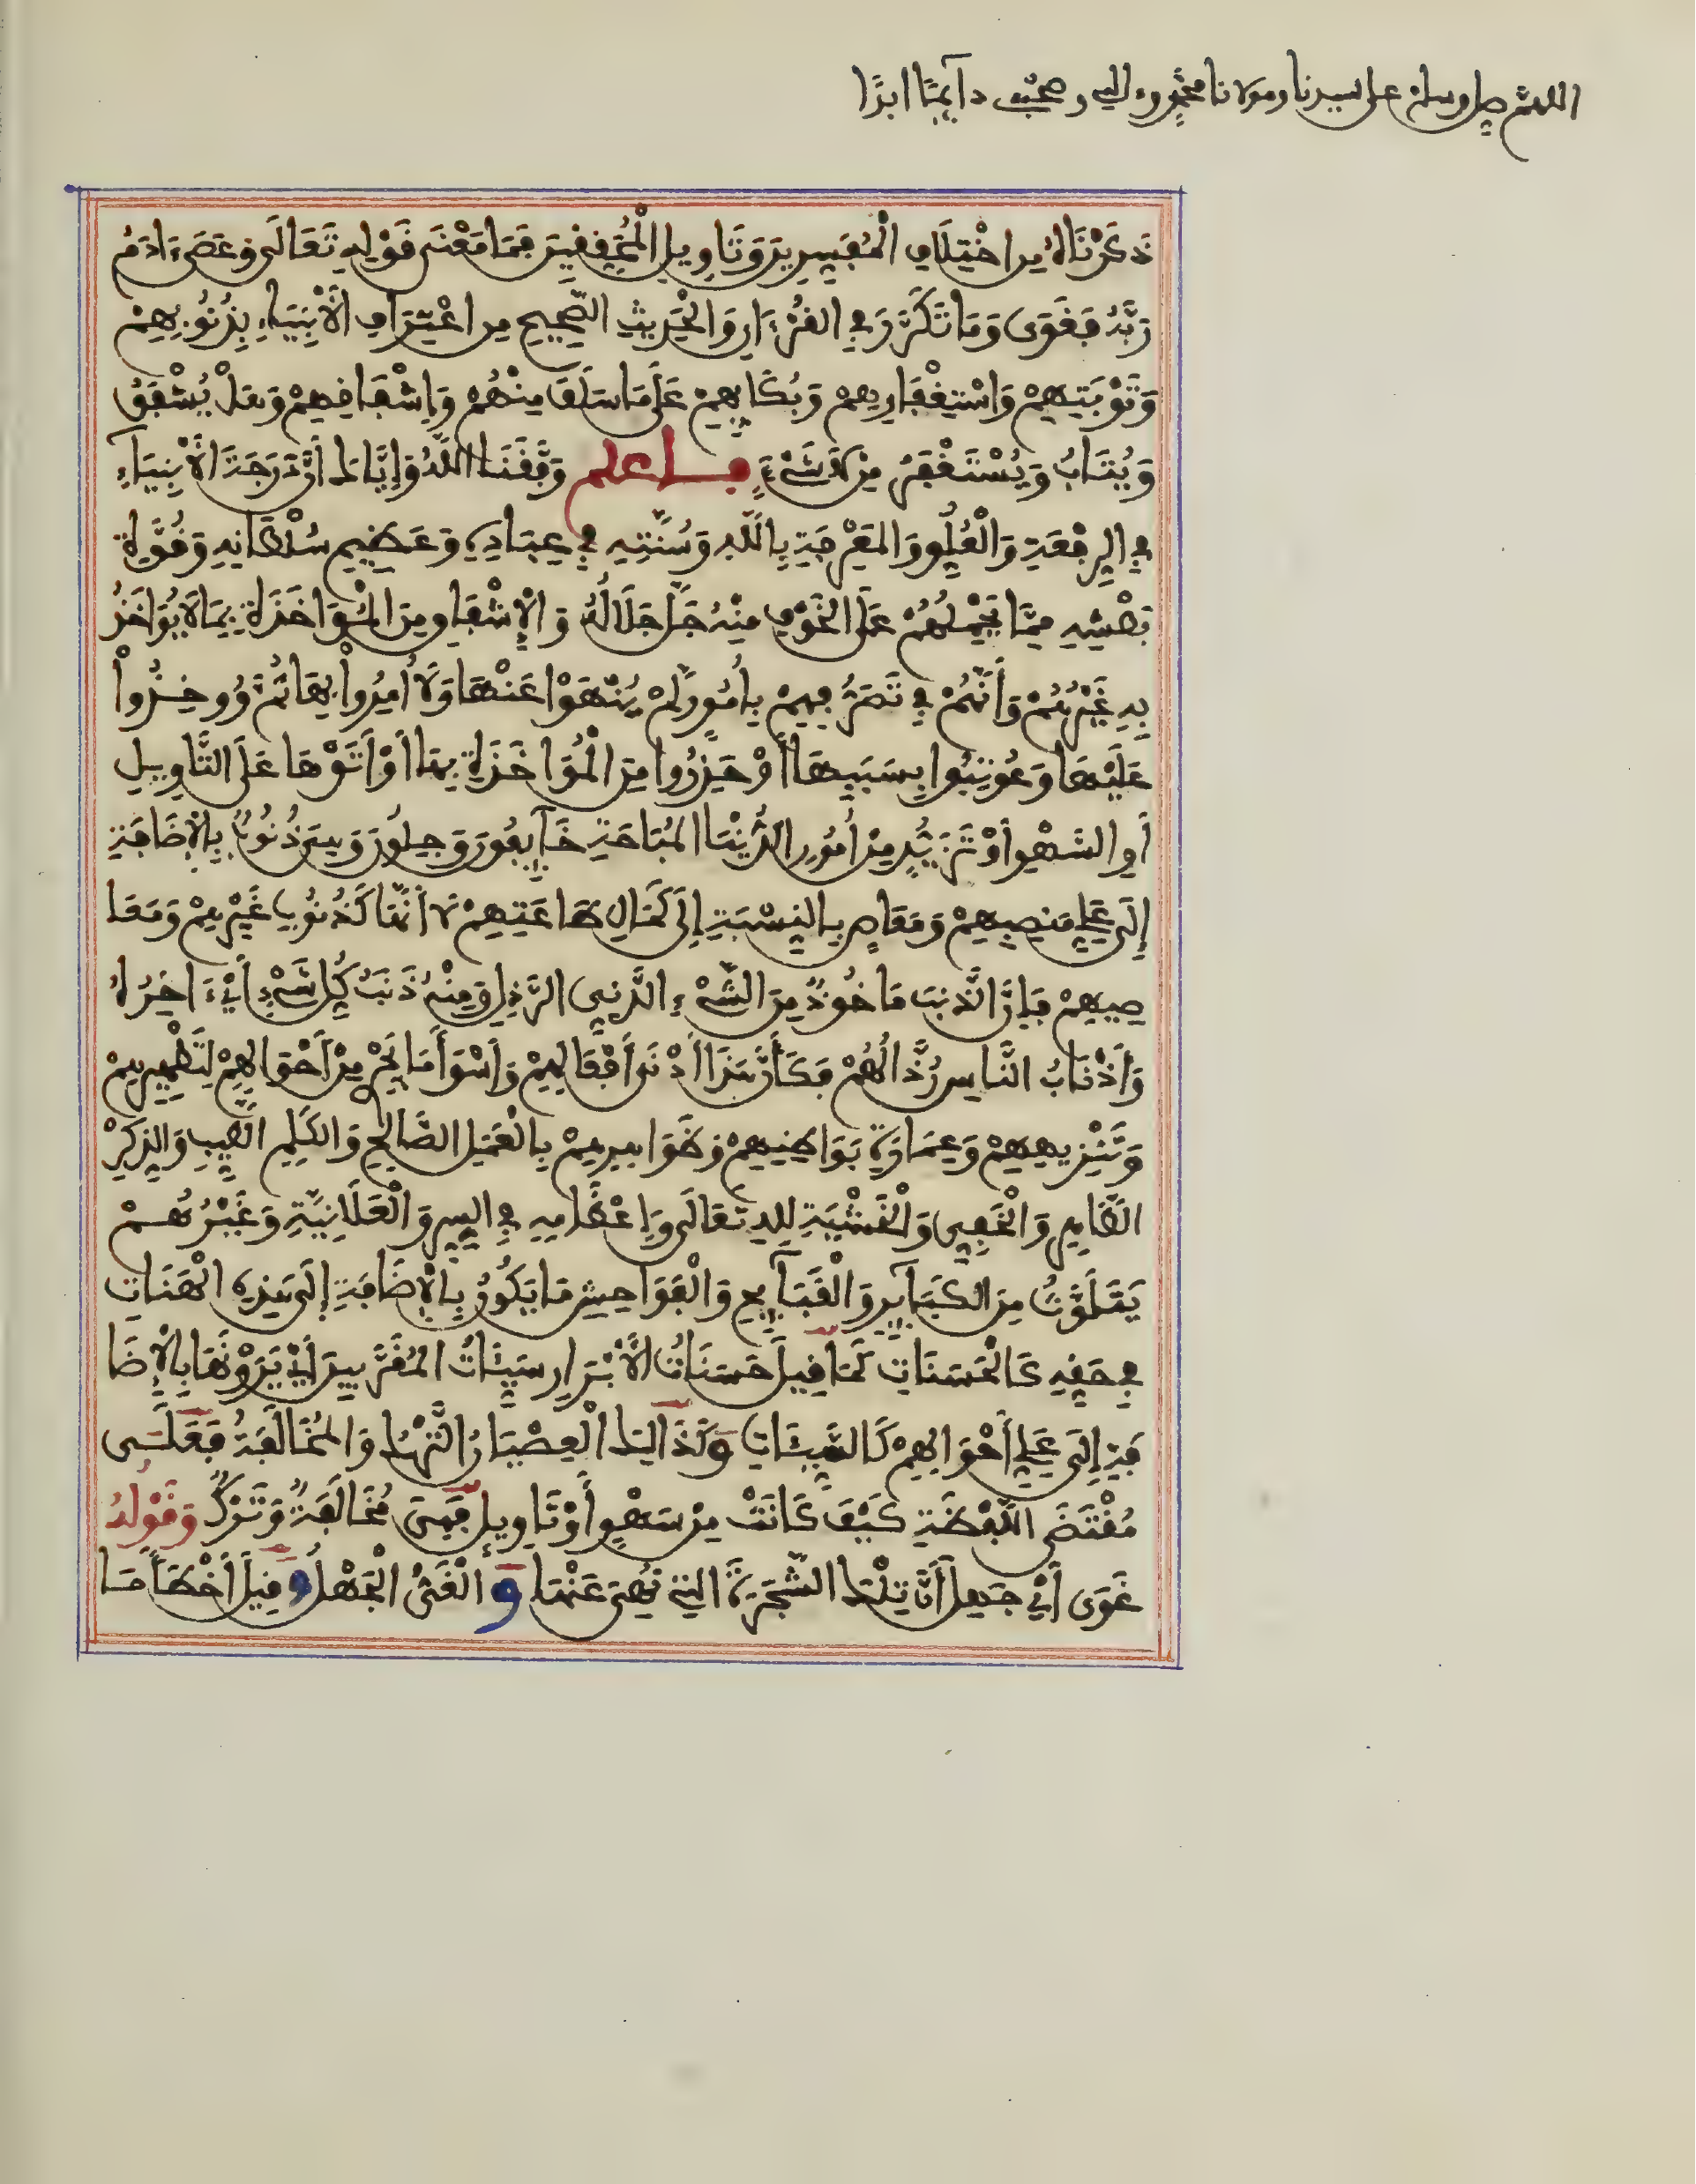 اللهم صل وسلم على سيدنا ومولانا محمد وءاله وصحبه دآئما ابدا
ذَكَرْنَاهُ مِنِ اخْتِلَافِ الْمُفَسِّرِينَ وَتَاوِيلِ الْمُحَقِّقِينَ فَمَا مَعْنَى قَوْلِهِ تَعَالَى وَعَصَىٰ ءَادَمُ
رَبَّهُ فَغَوَى وَمَا تَكَرَّرَ فِي الْقُرْءَانِ وَالْحَدِيثِ الصَّحِيحِ مِنِ اعْتِرَافِ الْأَنْبِيَاءِ بِذُنُوبِهِمْ
وَتَوْبَتِهِمْ وَاسْتِغْفَارِهِمْ وَبُكَايِهِمْ عَلَى مَا سَلَفَ مِنْهُمْ وَإِشْفَاقِهِمْ وَهَلْ يُشْفَقُ
وَيُتَابُ وَيُسْتَغْفَرُ مِنْ لَا شَيْءٍ فاعلم وَفَّقَنَا اللَّهُ وَإِيَّاكَ أَنَّ دَرَجَةَ الْأَنْبِيَاءِ
فِي الرِّفْعَةِ وَالْعُلُوِّ وَالْمَعْرِفَةِ بِاللَّهِ وَسُنَّتِهِ فِي عِبَادِهِ وَعَظِيمِ سُلْطَانِهِ وَقُوَّةِ
بَطْشِهِ مِمَّا يَحْمِلُهُمْ عَلَى الْخَوْفِ مِنْهُ جَلَّ جَلَالُهُ وَالْإِشْفَاقِ مِنَ الْمُؤَاخَذَةِ بِمَا لَا يُؤَاخَذُ
بِهِ غَيْرُهُمْ وَأَنَّهُمْ فِي تَصَرُّفِهِمْ بِأُمُورٍ لَمْ يُنْهَوْا عَنْهَا وَلَا أُمِرُوا بِهَا ثُمَّ وُوخِذُوا
عَلَيْهَا وَعُوتِبُوا بِسَبَبِهَا أَوْ حُذِّرُوا مِنَ الْمُؤَاخَذَةِ بِهَا أَوْ أَتَوْهَا عَلَى التَّاوِيلِ
أَوِ السَّهْوِ أَوْ تَزَيُّدٍ مِنْ أُمُورِ الدُّنْيَا الْمُبَاحَةِ خَآيِفُونَ وَجِلُونَ وَهِيَ ذُنُوبٌ بِالْإِضَافَةِ
إِلَى عَلِيِّ مَنْصِبِهِمْ وَمَعَاصٍ بِالنِّسْبَةِ إِلَى كَمَالِ طَاعَتِهِمْ لَا أَنَّهَا كَذُنُوبِ غَيْرِهِمْ وَمَعَا
صِيهِمْ فَإِنَّ الذَّنْبَ مَاخُوذٌ مِنَ الشَّيْءِ الدَّنِيِّ الرَّذْلِ وَمِنْهُ ذَنَبُ كُلِّ شَيْءٍ أَيْ ءَاخِرُهُ
وَأَذْنَابُ النَّاسِ رُذَّالُهُمْ فَكَأَنَّ هَذَا أَدْنَى أَفْعَالِهِمْ وَأَسْوَأُ مَا يَجْرِي مِنْ أَحْوَالِهِمْ لِتَطْهِيرِهِمْ
وَتَنْزِيهِهِمْ وَعِمَارَةِ بَوَاطِنِهِمْ وَظَوَاهِرِهِمْ بِالْعَمَلِ الصَّالِحِ وَالْكَلِمِ الطَّيِّبِ وَالذِّكْرِ
الظَّاهِرِ وَالْخَفِيِّ وَالْخَشْيَةِ لِلهِ تَعَالَى وَإِعْظَامِهِ فِي السِّرِّ وَالْعَلَانِيَّةِ وَغَيْرُهُمْ
يَتَلَوَّثُ مِنَ الْكَبَآيِرِ وَالْقَبَآيِحِ وَالْفَوَاحِشِ مَا يَكُونُ بِالْإِضَافَةِ إِلَى هَذِهِ الْهَنَاتِ
فِي حَقِّهِ كَالْحَسَنَاتِ كَمَا قِيلَ حَسَنَاتُ الْأَبْرَارِ سَيِّئَاتُ الْمُقَرَّبِينَ أَيْ يَرَوْنَهَا بِالْإِضَا
فَةِ إِلَى عَلِيِّ أَحْوَالِهِمْ كَالسَّيِّئَاتِ وَكَذَالِكَ الْعِصْيَانُ التَّرْكُ وَالْمُخَالَفَةُ فَعَلَى
مُقْتَضَى اللَّفْظَةِ كَيْفَ كَانَتْ مِنْ سَهْوٍ أَوْ تَاوِيلٍ فَهِيَ مُخَالَفَةٌ وَتَرْكٌ وَقَوْلُهُ
غَوَى أَيْ جَهِلَ أَنَّ تِلْكَ الشَّجَرَةَ الَّتِي نُهِيَ عَنْهَا وَالْغَيُّ الْجَهْلُ وَقِيلَ أَخْطَأَ مَا